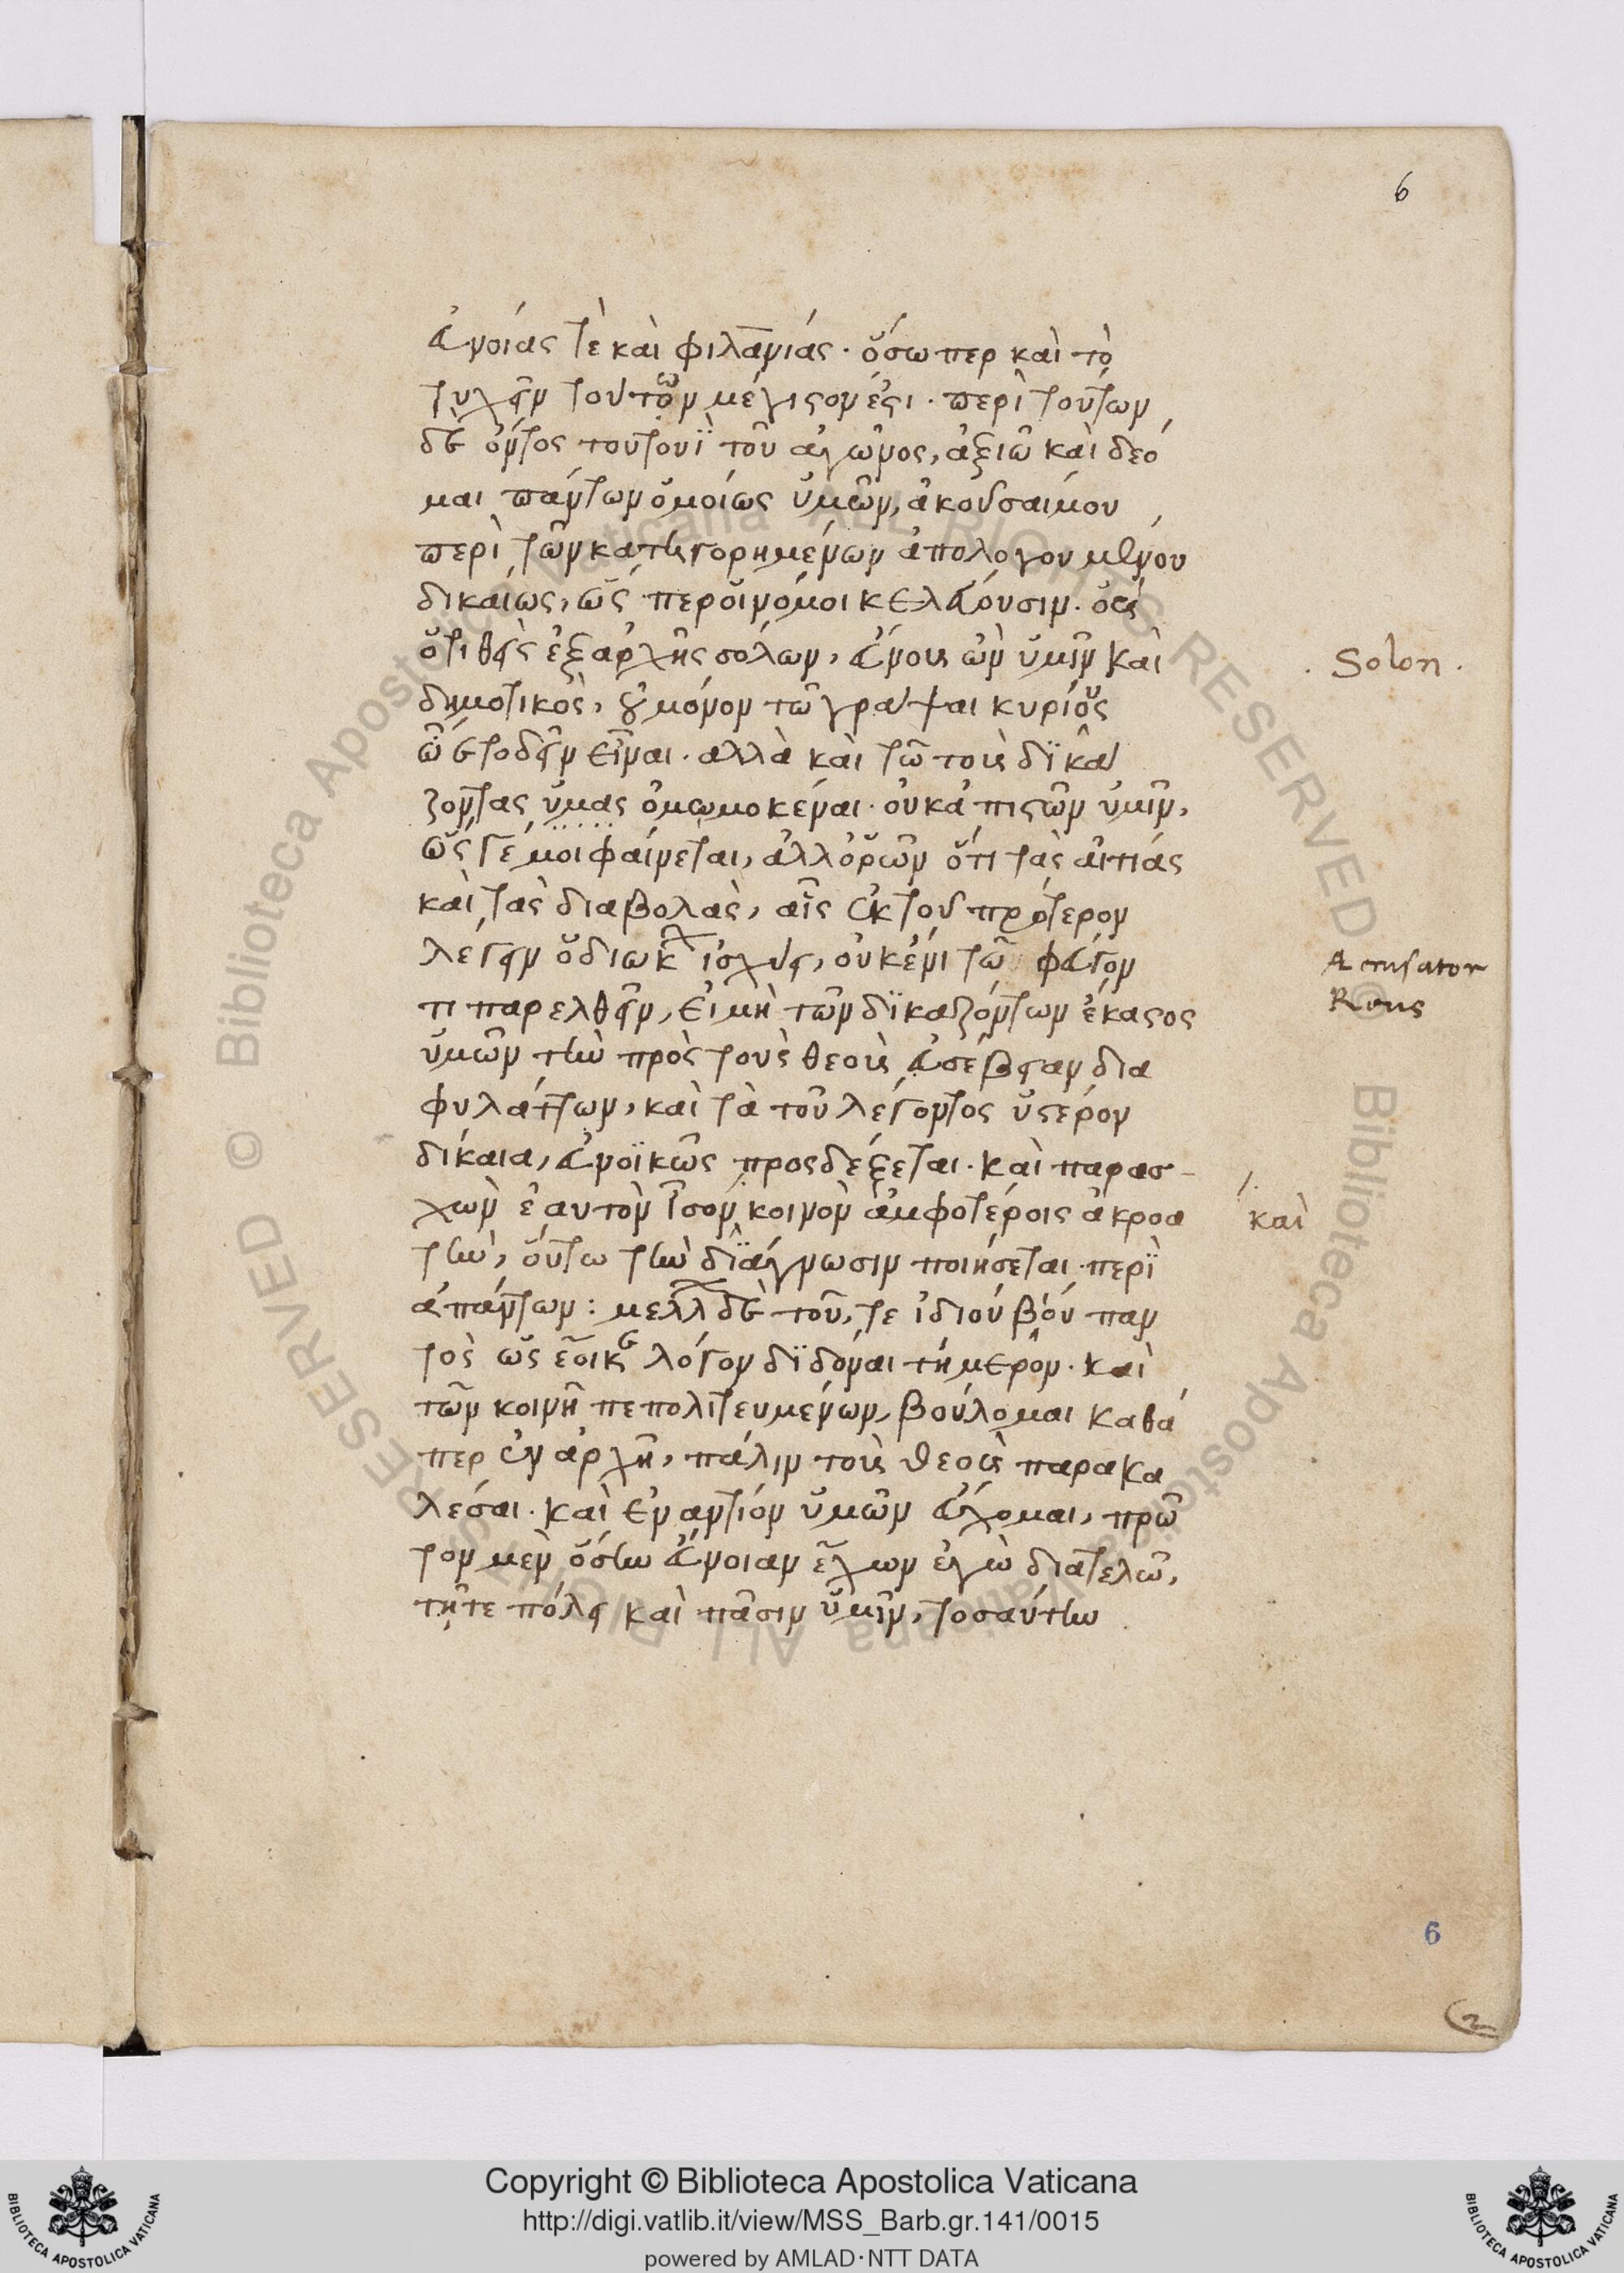 6
εὐνοίας τὲ καὶ φιλανίας· ὅσω περ καὶ τὸ
τυχεῖν τούτων μέγιστον ἐστι· περὶ τούτων
δὲ ὄντος τουτουΐ τοῦ ἀγῶνος, ἀξιῶ καὶ δέο
μαι πάντων ὁμοίως ὑμῶν, ἀκοῦσαί μου
περὶ τῶν κατηγορημένων ἀπολογουμένου
δικαίως, ὥς περ οἱ νόμοι κελεύουσιν. οὓς
ὁ τιθεὶς ἐξ ἀρχῆς σόλων, εὔνους ὢν ὑμῖν καὶ
δημοτικὸς, οὐ μόνον τῶ γράψαι κυρίους
ὤετο δεῖν εἶναι. αλλὰ καὶ τῶ τοὺς δϊκά
ζοντας ὑμας ὀμωμοκέναι. οὐκ ἀπιστῶν ὑμῖν,
ὥς γέ μοι φαίνεται, ἀλλ ὁρῶν ὅτι τὰς αἰτίας
καὶ τὰς διαβολὰς, αἷς ἐκ τοῦ πρότερον
λέγειν ὁ διώκ ἰσχύει, οὐκ ἔνι τῶ φεύγον
τι παρελθεῖν, εἰ μὴ τῶν δϊκαζόντων ἕκαστος
ὑμῶν τὴν πρὸς τοὺς θεοὺς εὐσέβειαν δια
φυλάττων, καὶ τὰ τοῦ λέγοντος ὑστέρου
δίκαια, εὐνοϊκῶς προσδέξεται. καὶ παρασ-
χὼν ἑαυτὸν ἴσον κοινὸν ἀμφοτέροις ἀκροα
τὴν, οὕτω τὴν δϊάγνωσιν ποιήσεται περῒ
ἁπάντων: μέλλ δὲ τοῦ, τε ἰδίου βίου παν
τὸς ὡς ἔοικε λόγον δϊδόναι τήμερον. καὶ
τῶν κοινῇ πεπολιτευμένων, βούλομαι καθά
περ ἐν ἀρχῇ, πάλιν τοὺς θεοὺς παρακα
λέσαι. καὶ ἐναντίον ὑμῶν εὔχομαι, πρῶ
τον μὲν ὅσην εὔνοιαν ἔχων ἐγὼ διατελῶ,
τῇ τε πόλει καὶ πᾶσιν ὑμῖν, τοσαύτην
. Solon .
Accusator
Reus
καὶ
6
2
Copyright © Biblioteca Apostolica Vaticana
http://digi.vatlib.it/view/MSS_Barb.gr.141/0015
powered by AMLAD·NTT DATA
BIBLIOTECA APOSTOLICA VATICANA
BIBLIOTECA APOSTOLICA VATICANA
© Biblioteca Apostolica Vaticana ALL RIGHTS RESERVED
© Biblioteca Apostolica Vaticana ALL RIGHTS RESERVED